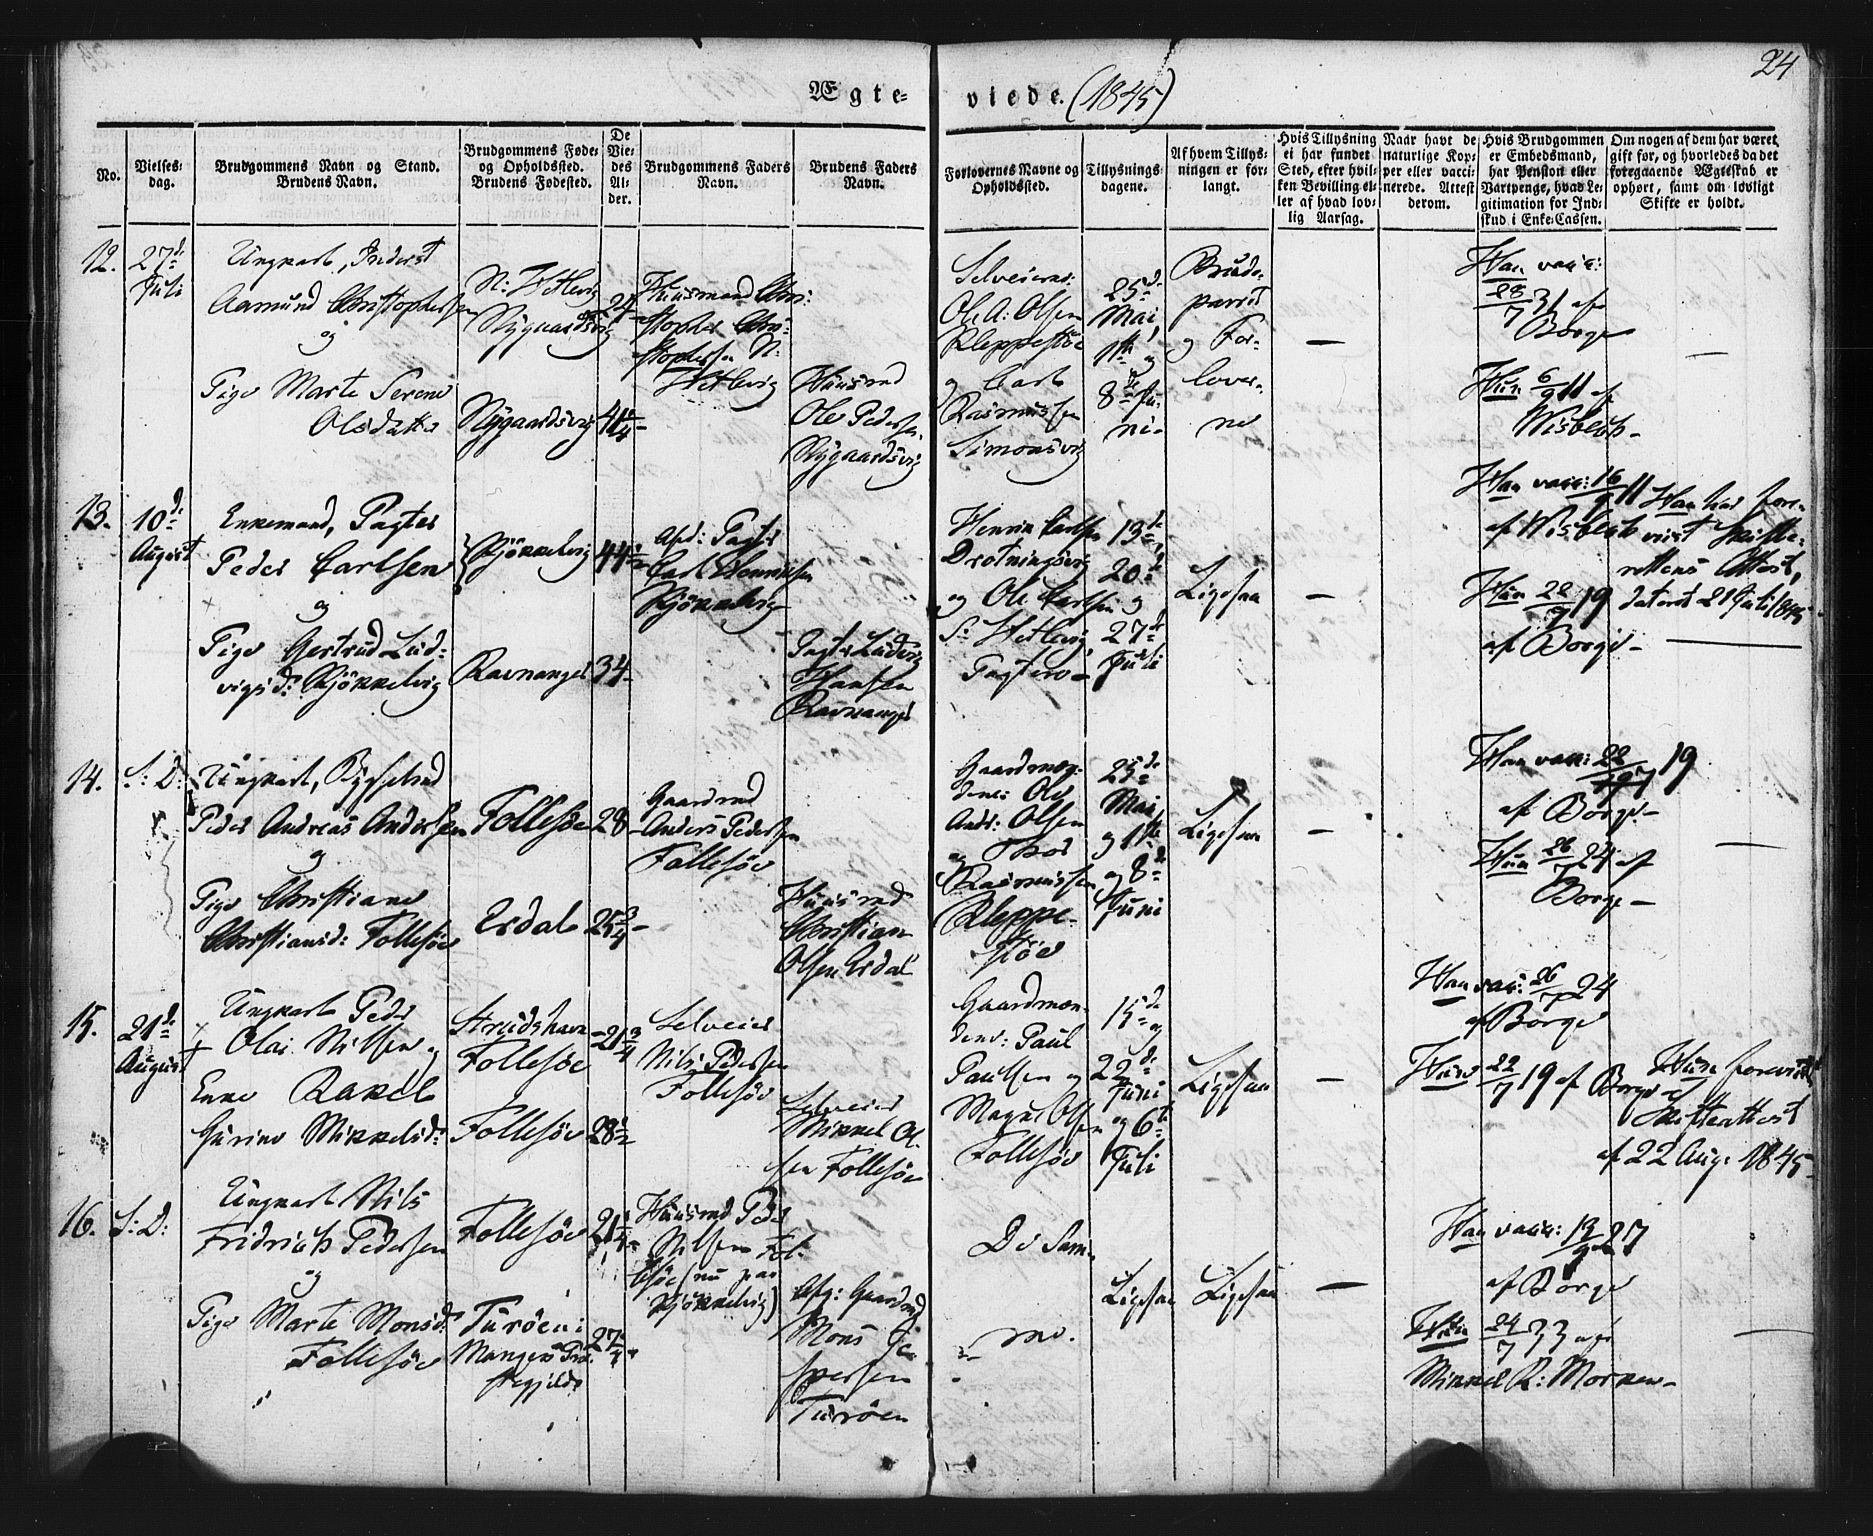 24
Ægte- viede. (1845)
No.
Vielses-
dag.
Brudgommens Navn og Stand.
Brudens Navn.
Brudgommens Føde-
og Opholdssted.
Brudens Fødested.
De
Vie-
des
Al-
der.
Brudgommens Faders
Navn.
Brudens Faders
Navn.
Forlovernes Navne og
Opholdssted.
Tillysnings-
dagene.
Af hvem Tillys-
ningen er for-
langt.
Hvis Tillysning
ei har fundet
Sted, efter hvil-
ken Bevilling el-
ler af hvad lov-
lig Aarsag.
Naar havt de
naturlige Kop-
per eller vacci-
nerede. Attest
derom.
Hvis Brudgommen
er Embedsmand,
har Pension eller
Vartpenge, hvad Le-
gitimation for Ind-
skud i Enke-Cassen.
Om nogen af dem har været
gift før, og hvorledes da det
foregaaende Ægteskab er
ophørt, samt om lovligt
Skifte er holdt.
12.
27d
Juli
Ungkarl, Inderst
Aamund Christophersen
og
Pige Marte Serine
Olsdatter
Nygaardsvig
Nygaardsvig
24
Huusmand Chri-
stopher Chri-
stophersen N:
Huusmd
Ole Pedersen
Nygaardsvig
Selveierne
Ole A: Olsen
Kleppestöe
og Carl
Rasmussen
Simonsvig
25d
Mai,
1ste og
8de Ju-
ni-
Brude-
parret
og For-
lover-
ne
—
Han vacc:
28/7 31 af
Borge
Hun 6/9 11 af
Wisbech-
—
13.
10d
August
Enkemand, Pagter
Peder Carlsen
og
Pige Gertrud Lud-
vigsd: Kjökkelvig
Kjökkelvig
Ravnanger
44½
34-
Afd: Pagter
Carl Henriksen
Kjökkelvig
Pagter Ludvig
Hansen
Ravnanger
Henrik Carlsen
Drotningsvig
og Ole Carlsen
Pagtere-
13de,
20d
og
27de
Juli
Ligesaa
—
Han vacc: 16/9 11
af Wisbech
Hun 22/7 19
af Borge-
Han har fore-
vist Skifte-
rettens Attest,
dateret 21 Juli 1845
14.
S: D:
Ungkarl,
Peder Andreas Andersen
og
Pige Christiane
Christiansd: Follesöe
Follesöe
Erdal
28
25¾-
Gaardmd
Anders Pedersen
Follesöe
Huusmd
Christian
Olsen Erdal
Gaardmæn-
dene Ole
Andr: Olsen
og Thor
Rasmussen
Kleppe-
stöe
25d
Mai
og 1ste
og 8de
Juni
Ligesaa
—
Han vacc: 22/7 19
af Borge-
Hun 26/7 24 af
Borge-
—
15.
21d
August
Ungkarl Peder
Olai Nilsen og
Enke Rakel
Gurine Mikkelsd:
Strudshavn-
Follesöe
Follesöe
21¾
28½
Selveier
Nils Pedersen
Follesöe
Selveier
Mikkel Ol-
sen Follesöe
Gaardmæn-
dene: Paul
Paulsen og
Magne Olsen
Follesöe
15de og
22de
Juni
og 6te
Juli
Ligesaa
—
Han vacc: 26/7 24
af Borge
Hun 22/7 19 af Borge
Hun foreviist
Skifteattest
af 22 Aug: 1845-
16.
S: D:
Ungkarl Nils
Fridrich Pedersen
og
Pige Marte Monsd:
Follesöe
Follesöe
Turöen i
Mangers Præ-
stegjeld
21¼
27¼
Huusmd Peder
Nilsen Fol-
lesöe (nu paa
Kjökkelvig)
Afg: Gaardmd
Mons Je-
spersen
Turöen
De Sam-
me.
Ligesaa
Ligesaa
—
Han vacc: 13/9 27
af Borge
Hun 24/7 33 af
Mikkel R: Morken-
—